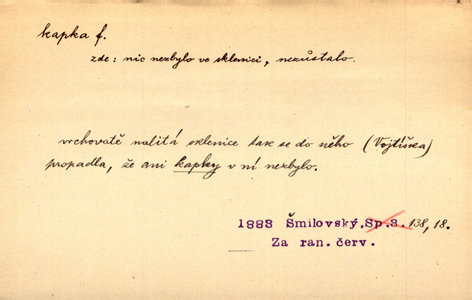 kapka f.
zde: nic nezbylo ve sklenici, nezůstalo.
vrchovatě nalitá sklenice tak se do něho (Vojtíška)
propadla, že ani kapky v ní nezbylo.
1883 Šmilovský, Sp.3. 138, 18.
Za ran. červ.